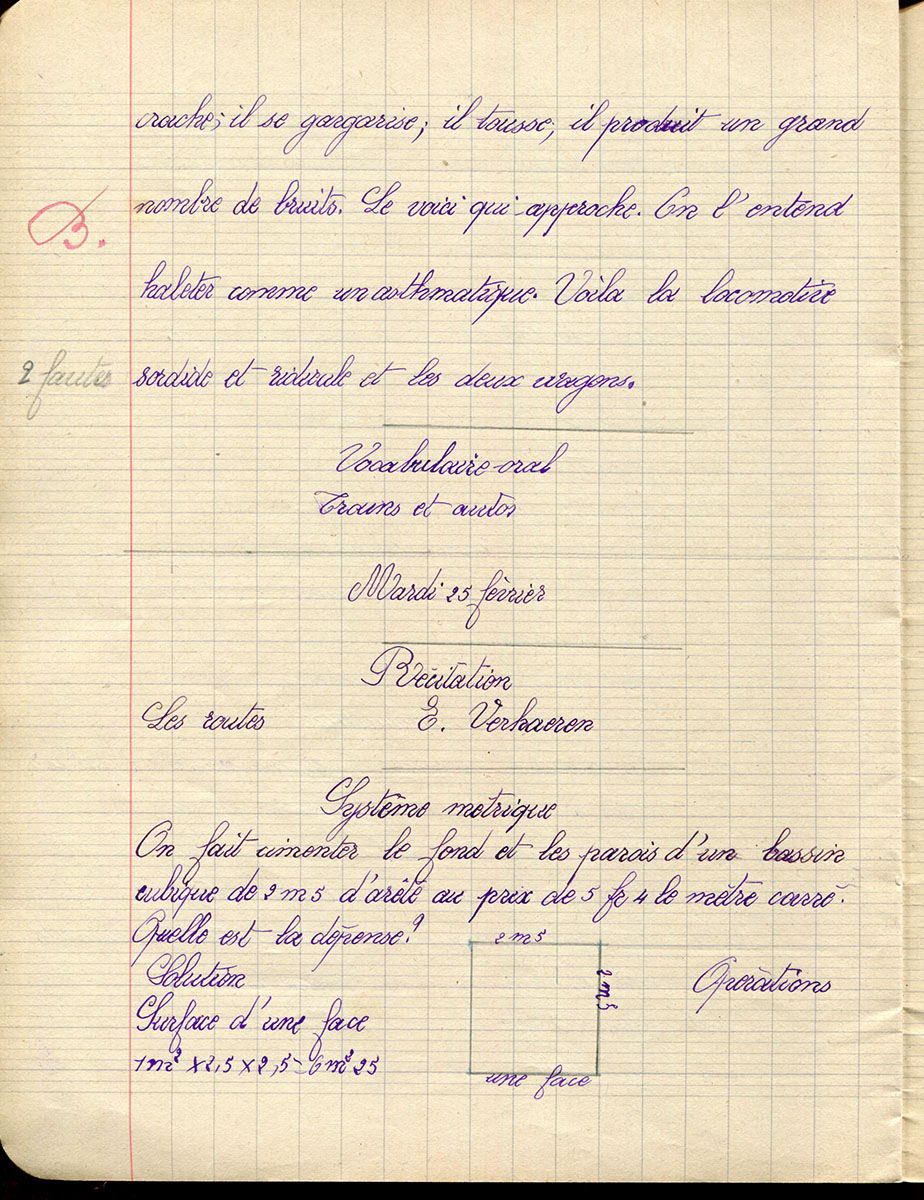 crache; il se gargarise; il tousse; il produit un grand
B.
nombre de bruits. Le voici qui approche. On l'entend
haleter comme un asthmatique. Voila la locomotive
2 fautes
sordide et ridicule et les deux wagons.
Vocabulaire oral
Trains et autos
Mardi 25 février
Récitation
Les routes E. Verhaeren
Système métrique
On fait cimenter le fond et les parois d'un bassin
cubique de 2 m 5 d'arête au prix de 5 fr 4 le mètre carré.
Quelle est la dépense?
2 m 5
Solution
2 m 5
Opérations
Surface d'une face
1 m² × 2,5 × 2,5 = 6 m² 25
une face